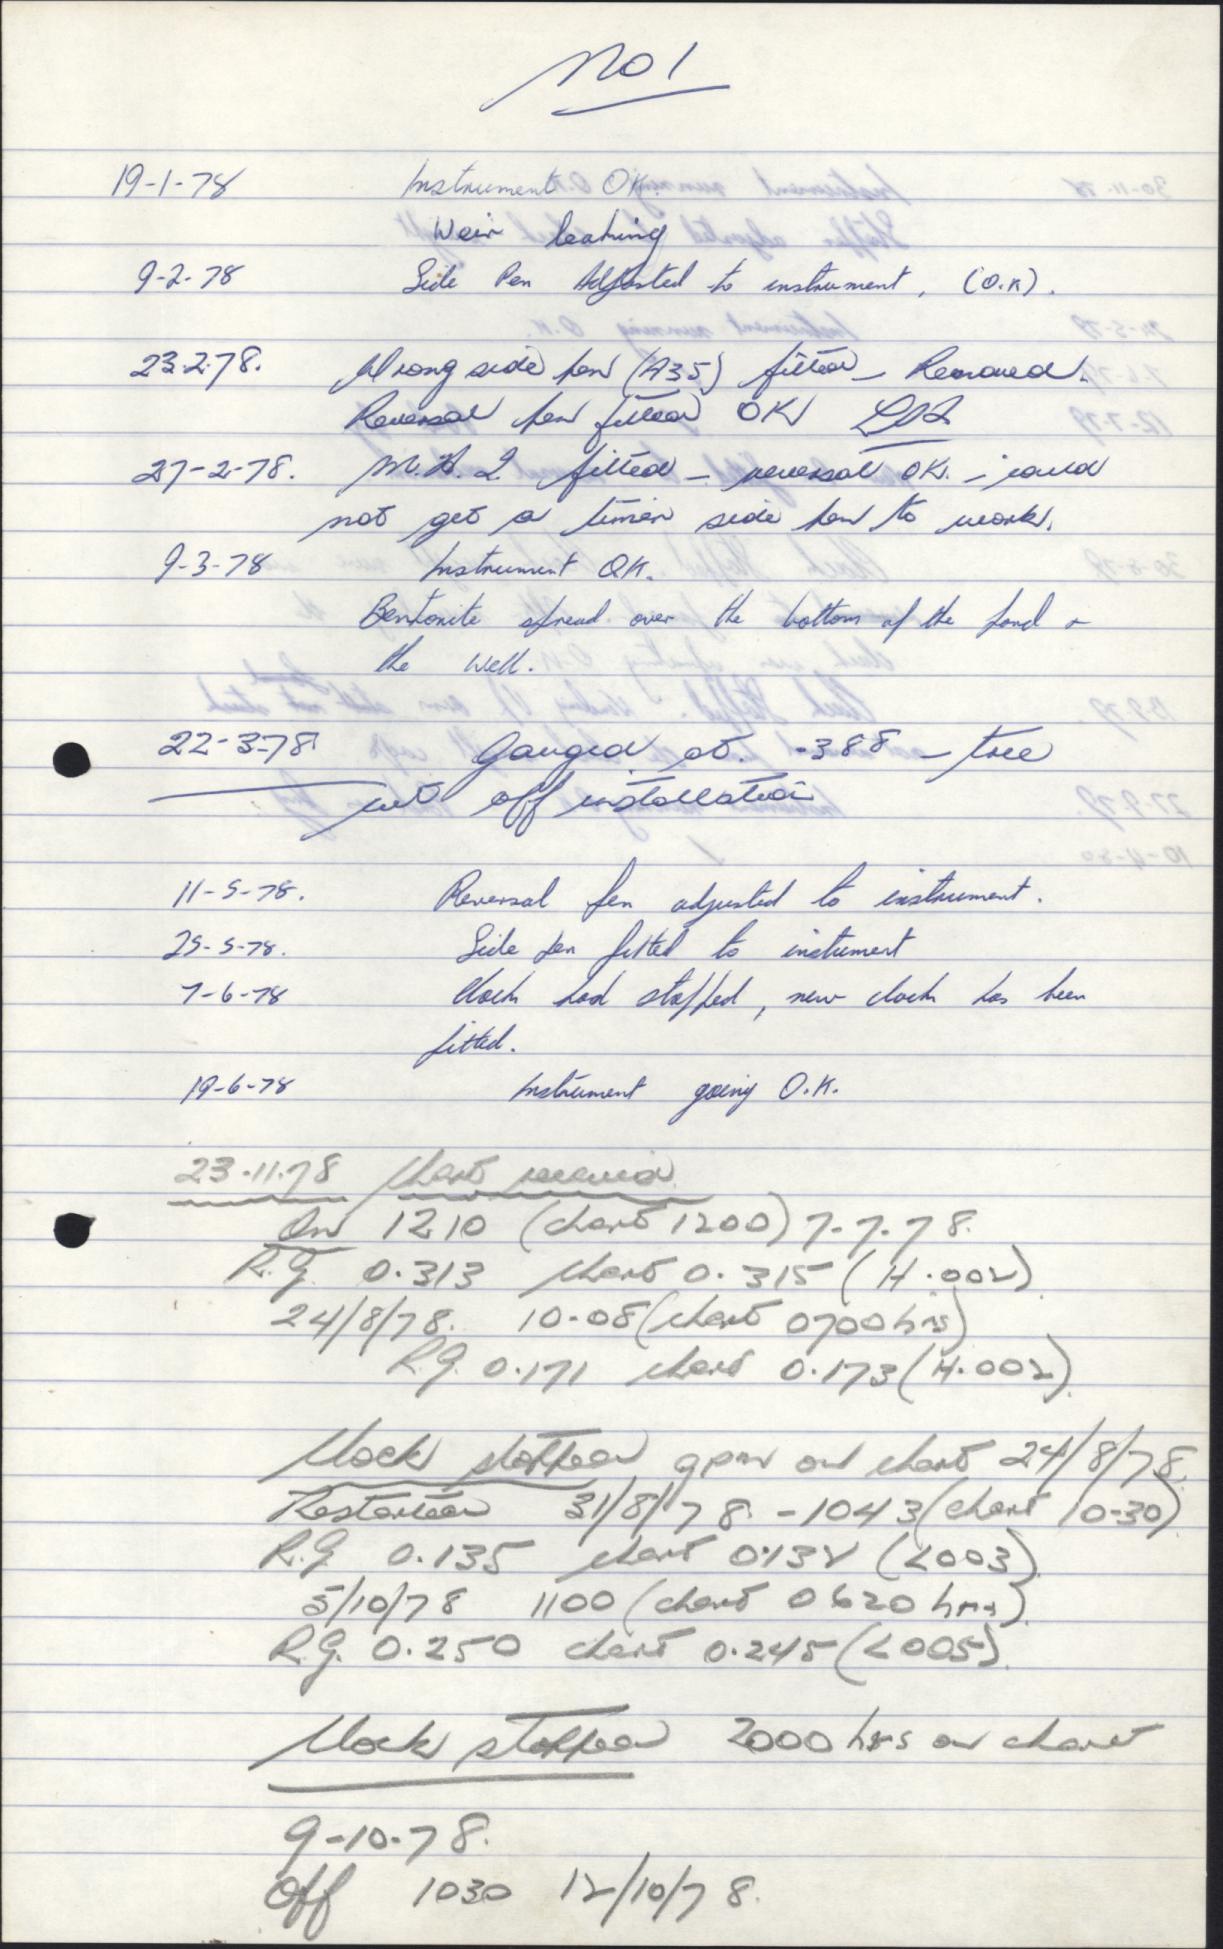 No 1
19-1-78 Instrument OK.
Weir leaking
9-2-78 Side Pen Adjusted to instrument, (O.K).
23.2.78. Wrong side pen (A35) fitted – Removed.
Reversal pen fitted OK
27-2-78. fitted – reversal OK. – could
not get a timer side pen to work.
9-3-78 Instrument OK.
Bentonite spread over the bottom of the pond &
the well.
22-3-78 Gauged at .388 – tree
cut off installation
11-5-78. Reversal pen adjusted to instrument.
25-5-78. Side pen fitted to instrument
7-6-78 Clock had stopped, new clock has been
fitted.
19-6-78 Instrument going O.K.
23.11.78 Chart
On 1210 (chart 1200) 7.7.78.
R.G. 0.313 chart 0.315 (H.002)
24/8/78. 10-08 (chart 0700 hrs)
R.G. 0.171 chart 0.173 (H.002)
Clock stopped 9pm on chart 24/8/78.
Restarted 31/8/78. – 1043 (chart 10-30)
R.G. 0.135 chart 0.132 (L003)
5/10/78 1100 (chart 0620 hrs)
R.G. 0.250 chart 0.245 (L005)
Clock stopped 2000 hrs on chart
9-10-78.
Off 1030 12/10/78.